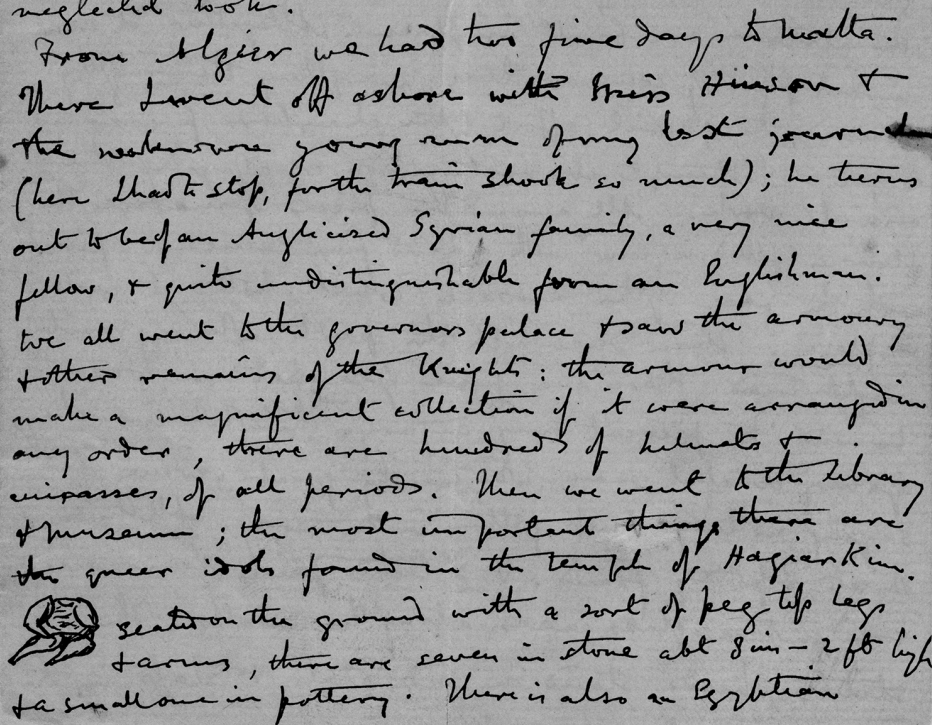 neglected look.
From Algier we had two fine days to Malta.
There I went off ashore with Miss Hinson +
the young man of my last journal
(here I had to stop, for the train shook so much); he turns
out to be of an Anglicised Syrian family, a very nice
fellow, + quite undistinguishable from an Englishman.
We all went to the governors palace + saw the armoury
+ other remains of the Knights : the armour would
make a magnificent collection if it were arranged in
any order, there are hundreds of helmets +
cuirasses, of all periods. Then we went to the library
+ museum ; the most important things there are
the queer idols found in the temple of Hagiar Kim.
seated on the ground with a sort of peg top legs
+ arms, there are seven in stone abt 8 in – 2 ft high
+ a small one in pottery. There is also an Egyptian